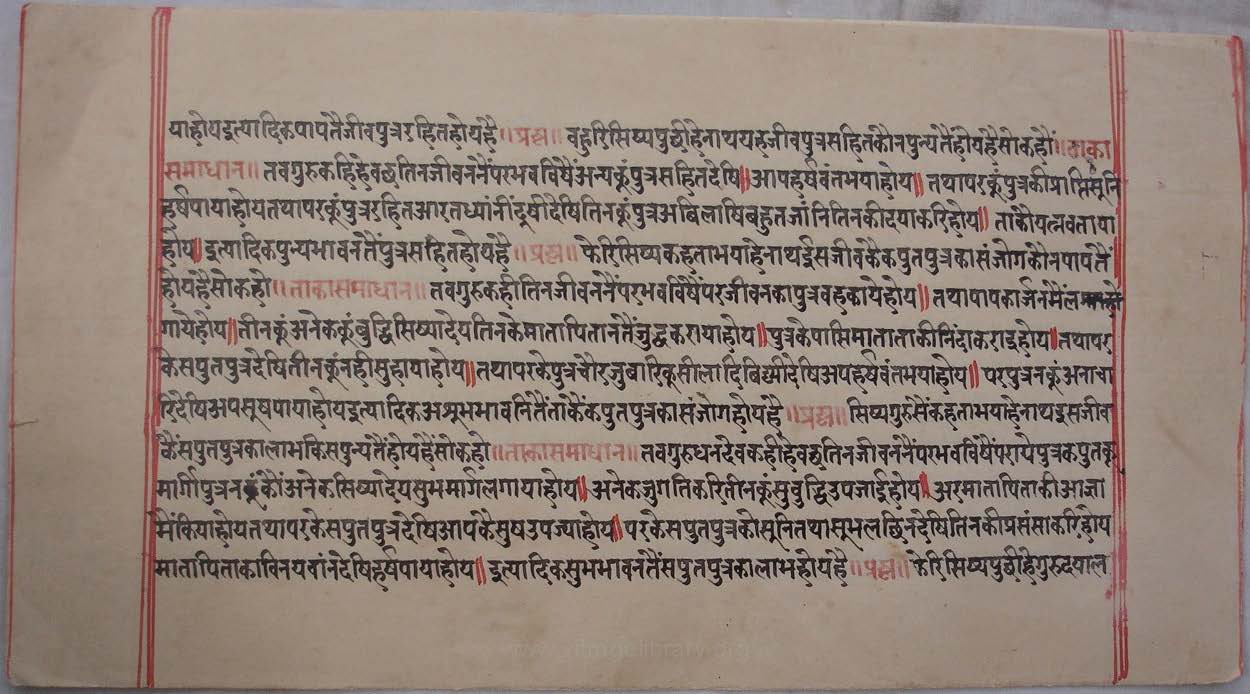 याहोयइत्यादिकपापतैजीवपुत्ररहितहोयहै॥प्रश्न॥ बहुरिसिष्यपुछीहेनाथयहजीवपुत्रसहितकौनपुन्यतैंहोयहैसोकहौं॥ताका
समाधान॥ तवगुरुकहिहेवछतिनजीवननैंपरभवविषैंअन्यकूंपुत्रसहितदेषि॥आपहर्षवंतभयाहोय॥ तथापरकूंपुत्रकीप्राप्तिसुनि
हर्षपायाहोयतथापरकूंपुत्ररहितआरतध्यांनीदुषीदेषितिनकूंपुत्रअबिलाषिबहुतजांनितिनकीदयाकरिहोय॥ ताकौयत्नवताया
होय॥इत्यादिकपुन्यभावनतैंपुत्रसहितहोयहै॥प्रश्न॥ फेरिसिष्यकहताभयाहेनाथईसजीवकैकपुतपुत्रकासंजोगकौनपापतैं
होयहैसोकहो॥ताकासमाधान॥ तवगुरुकहीतिनजीवननैंपरभवविषैंपरजीवनकापुत्रवहकायेहोय॥ तथापापकार्जनमैंल
गायेहोय॥तीनकूंअनेककूंबुद्धिसिष्यादेयतिनकेमातापितानतैंजुद्धकरायाहोय॥पुत्रकेपासिमाताताकीनिंदाकराइहोय॥तथापर
केसपुतपुत्रदेषितीनकूंनहीसुहायाहोय॥तथापरकेपुत्रचोरजुवारिकूसीलादिबिघ्नीदेषिअपहर्षवंतभयाहोय॥ परपुत्रनकूंअनाचा
रिदेषिअपसूषपायाहोयइत्यादिकअशूभभावनितैंताकैकपुतपुत्रकासंजोगहोयहै॥प्रश्न॥ सिष्यगुरुसैंकहताभयाहेनाथइसजीव
कैंसपुतपुत्रकालाभकिसपुन्यतैंहोयहैंसोकहो॥ताकासमाधान॥ तवगुरुधनदेवकहीहेवछतिनजीवननैंपरभवविषैंपरायेपुत्रकपुतकू
मार्गीपुत्रनकूंकौंअनेकसिष्यादेयसुभमार्गलगायाहोय॥ अनेकजुगतिकरितीनकूंसुबुद्धिउपजाईहोय॥ अरमातापिताकीआज्ञा
मैंकियाहोयतथापरकेसपुतपुत्रदेषिआपकैसुषउपज्याहोय॥परकेसपुतपुत्रकोसूनितथासूभलछिनदेषितिनकीप्रसंसाकरिहोय
मातापिताकाविनयवांनदेषिहर्षपायाहोय॥ इत्यादिकसुभभावनतैंसपुतपुत्रकालाभहोयहै॥प्रश्न॥ फेरिसिष्यपुछीहेगुरुदयाल